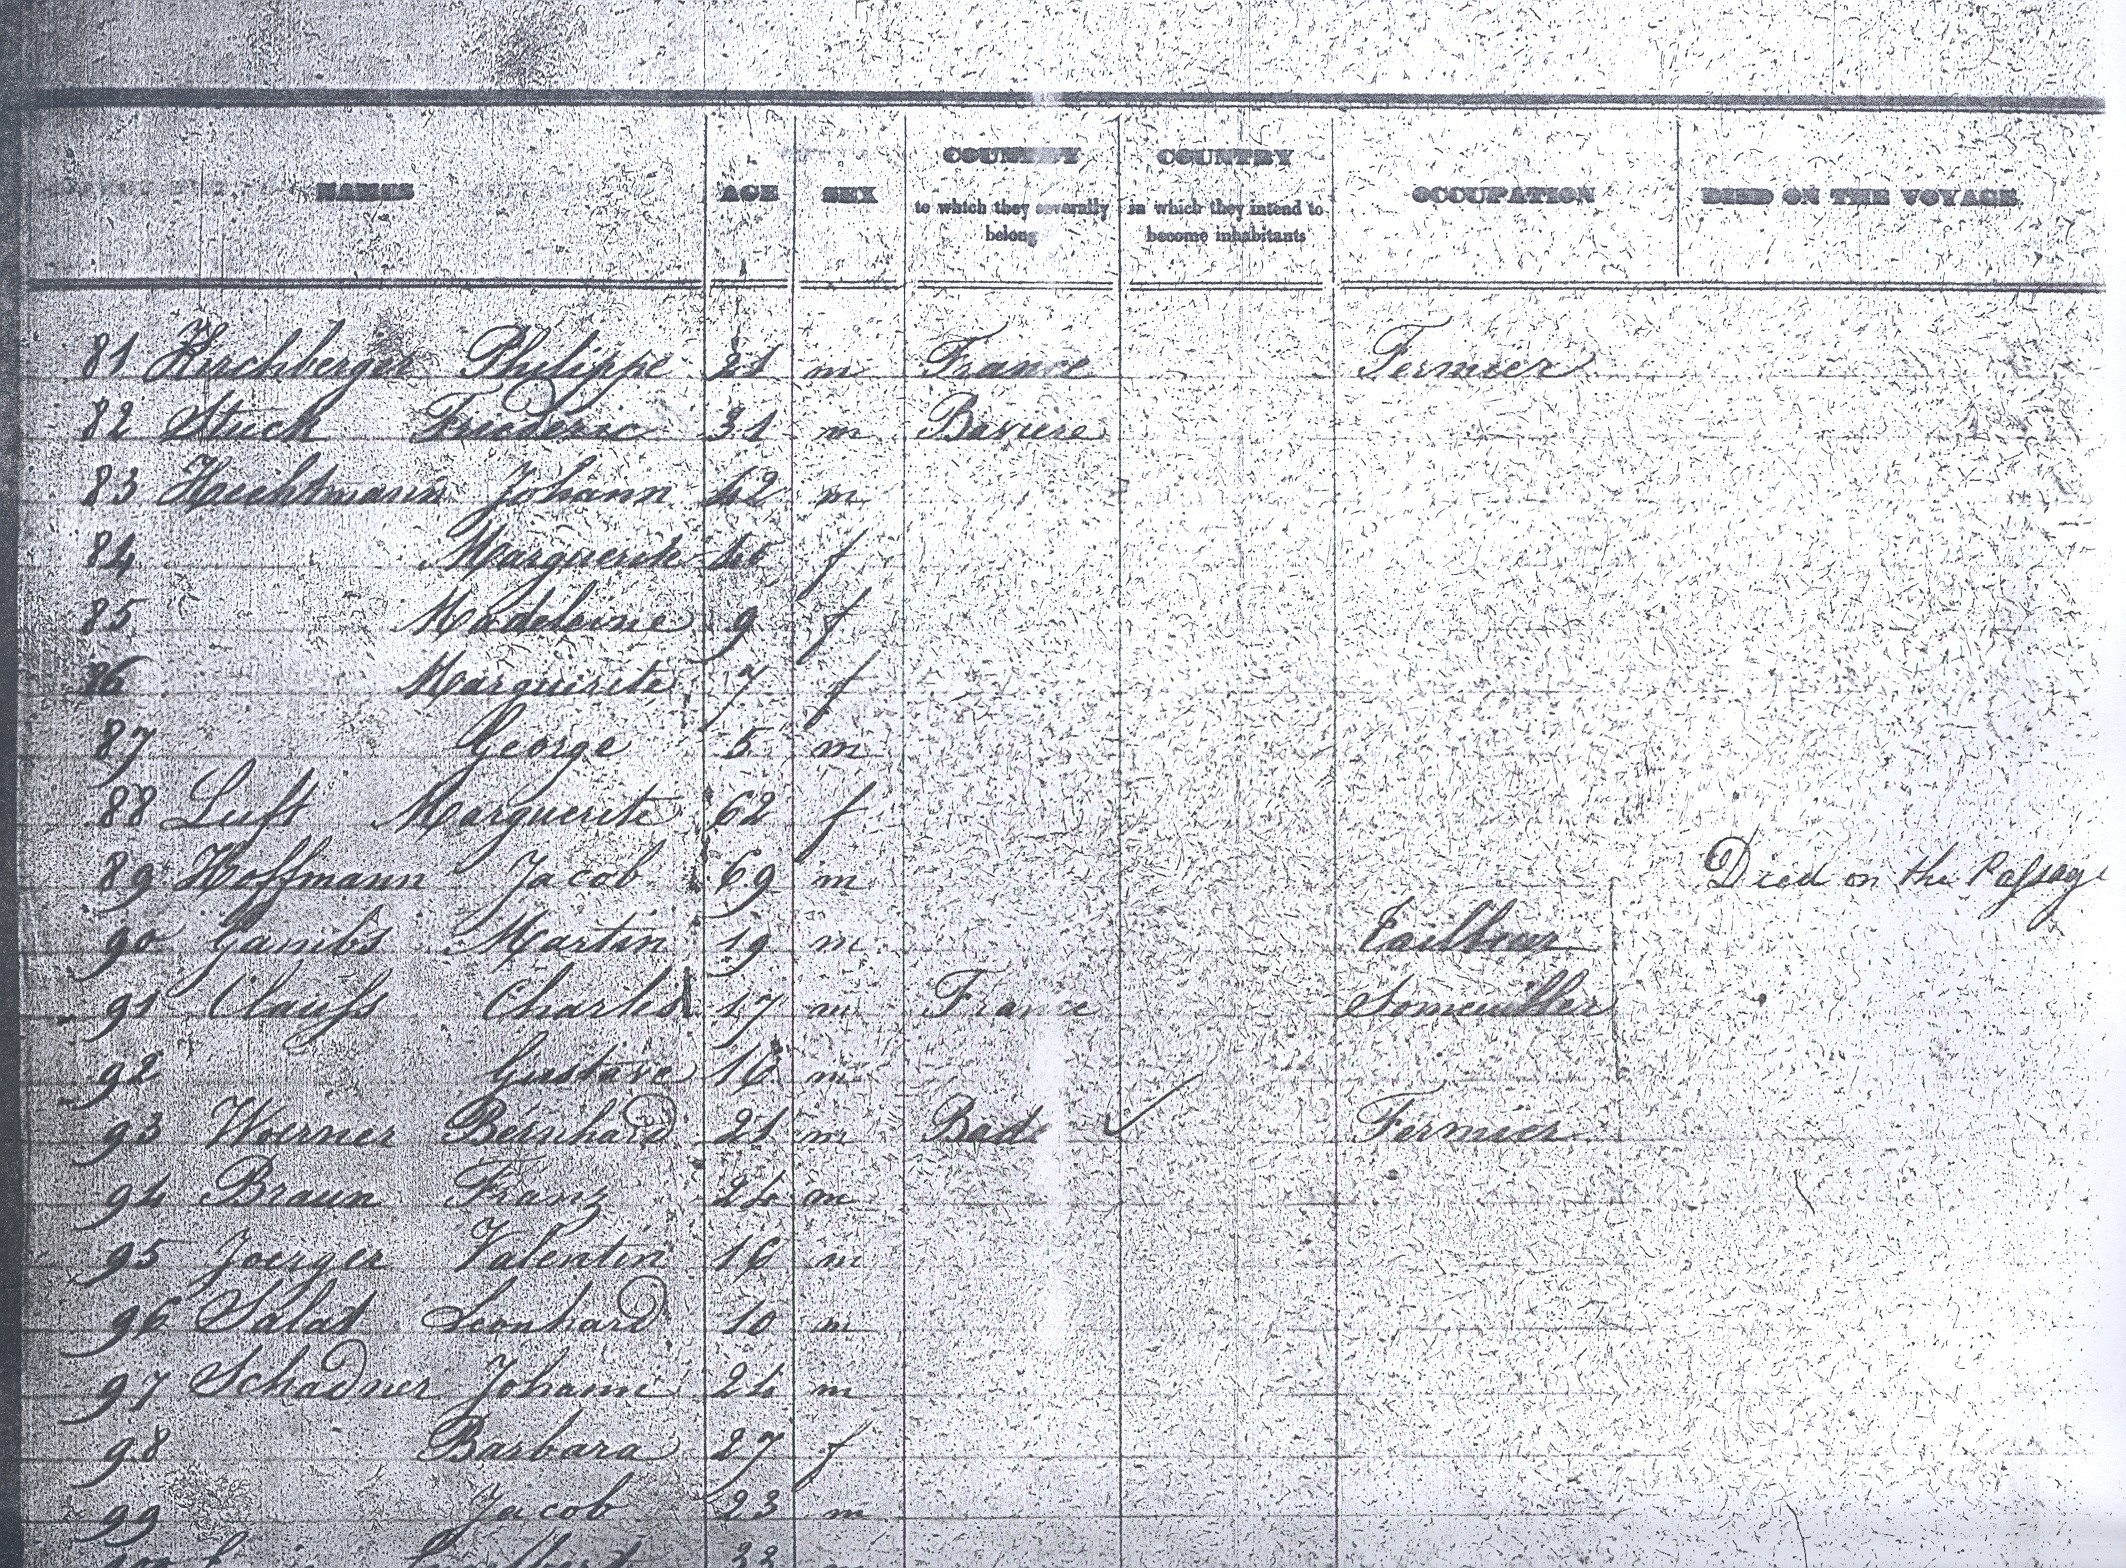 NAMES AGE SEX COUNTRY to which they severally belong COUNTRY in which they intend to become inhabitants OCCUPATION DIED ON THE VOYAGE
81 Kirchberger Philippe 21 m France Fermier
82 Stuck Frederic 31 m Baviere
83 Hechtmann Johann 42 m
84 Marguerite 40 f
85 Madeleine 9 f
86 Marguerite 7 f
87 George 5 m
88 Luft Marguerite 62 f
89 Hoffmann Jacob 69 m Died on the Passage
90 Gambs Martin 19 m Tailleur
91 Clauss Charles 17 m France
92 Gustave 16 m
93 Woerner Bernhard 21 m Bade Fermier
94 Braun Franz 24 m
95 Joerger Valentin 16 m
96 Salat Leonhard 10 m
97 Schadner Johann 24 m
98 Barbara 27 f
99 Jacob 23 m